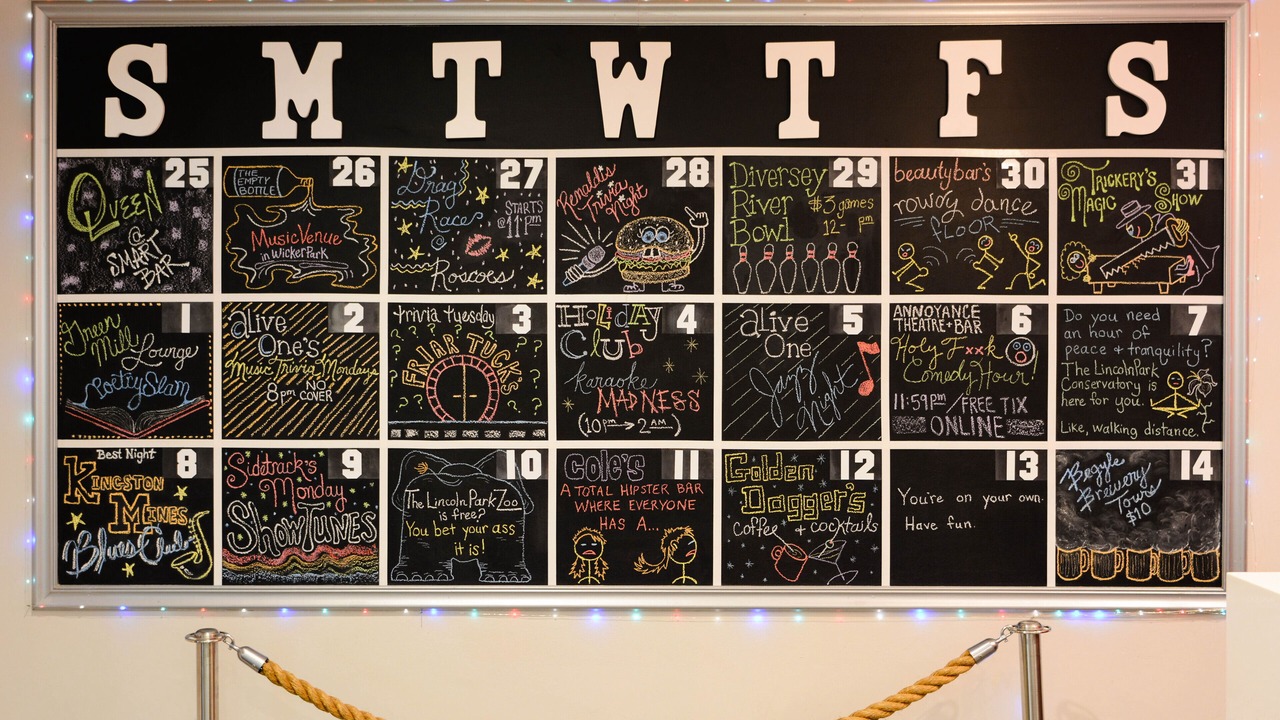 S M T W T F S
25
QUEEN
@
SMART
BAR
26
THE
EMPTY
BOTTLE
Music Venue
in Wicker Park
27
Drag
Races
STARTS
@11pm
Roscoes
28
Renaldi's
Trivia
Night
29
Diversey
River
Bowl
$3 games
12- pm
30
beautybar's
rowdy dance
FLOOR
31
TRICKERY'S
MAGIC SHOW
1
Green
Mill Lounge
Poetry Slam
2
alive
One's
Music Trivia Mondays
NO
8pm COVER
3
trivia tuesday
FRIAR TUCK'S
4
HoLiDAY
Club
karaoke
MADNESS
(10pm→2AM)
5
alive
One
Jazz
Night
6
ANNOYANCE
THEATRE+BAR
Holy F**k
Comedy Hour!
11:59pm / FREE TIX
ONLINE
7
Do you need
an hour of
peace + tranquility?
The Lincoln Park
Conservatory is
here for you.
Like, walking distance.
8
Best Night
KINGSTON
MINES
Blues Club
9
Sidetrack's
Monday
SHOWTUNES
10
The Lincoln Park Zoo
is free?
You bet your ass
it is!
11
COLE'S
A TOTAL HIPSTER BAR
WHERE EVERYONE
HAS A...
12
Golden
Dagger's
coffee + cocktails
13
You're on your own.
Have fun.
14
Begyle
Brewery
Tours
$10